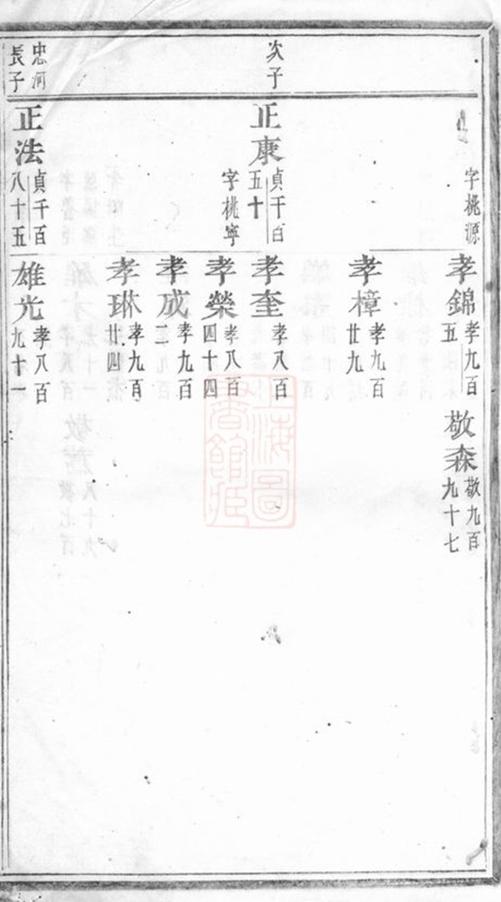 字桃源
孝錦 孝九百五
敬森 敬九百九十七
孝樟 孝九百廿九
次子
正康 貞千百五十
字桃寧
孝奎 孝八百
孝榮 孝八百四十四
孝成 孝九百
孝琳 孝九百廿四
忠河長子
正法 貞千百八十五
雄光 孝八百九十一
上海圖書館藏